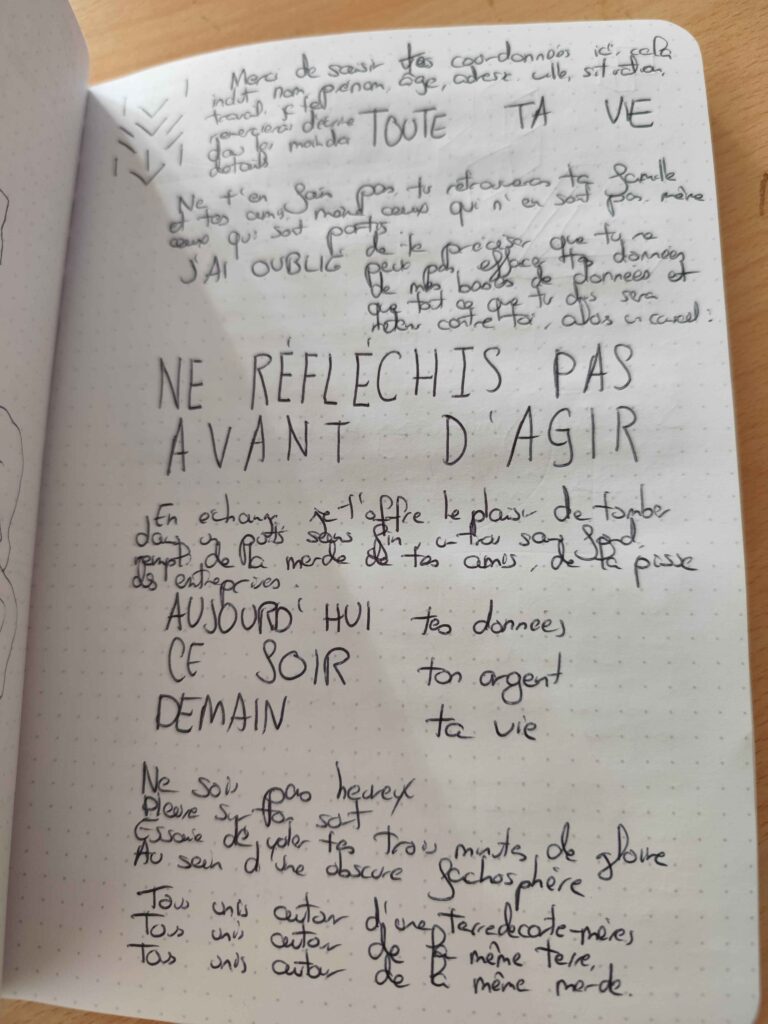 Merci de saisir tes coordonnées ici, cela
inclut nom, prénom, âge, adesse, ville, situation,
travail,
décrire TOUTE TA VIE
dans les
details
Ne t'en fais pas, tu retrouveras ta famille
et tes amis, moins ceux qui n'en sont pas, même
ceux qui sont partis
J'AI OUBLIÉ de te préciser que tu ne
peux pas effacer tes données
de mes bases de données et
que tout ce que tu dis sera
retenu contre toi, alors un conseil :
NE RÉFLÉCHIS PAS
AVANT D'AGIR
En echange, je t'offre le plaisir de tomber
dans un puits sans fin, un trou sans fond
rempli de la merde de tes amis, de la pisse
des entreprises.
AUJOURD'HUI tes données
CE SOIR ton argent
DEMAIN ta vie
Ne sois pas heureux
Pleure sur ton sort
Essaie de voler tes trois minutes de gloire
Au sein d'une obscure fachosphère
Tous unis autour d'une terre de carte-mères
Tous unis autour de la même terre,
Tous unis autour de la même merde.